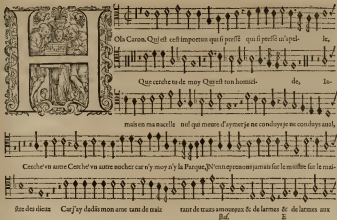 H
Ola Caron. Qui est cest importun qui si pressé qui si pressé m'apel- le,
Que cerche tu de moy Qui est ton homici- de, Ja-
mais en ma nacelle nul qui meure d'aymer je ne conduys je ne conduys aval,
Cerche un autre Cerche un autre nocher car n'y moy n'y la Parque, J'n'entreprenons jamais sur le maistre sur le mai-
stre des dieux Car j'ay dedãs mon ame tant de traiz tant de traiz amoureux & de larmes & de larmes aux
Bas. E